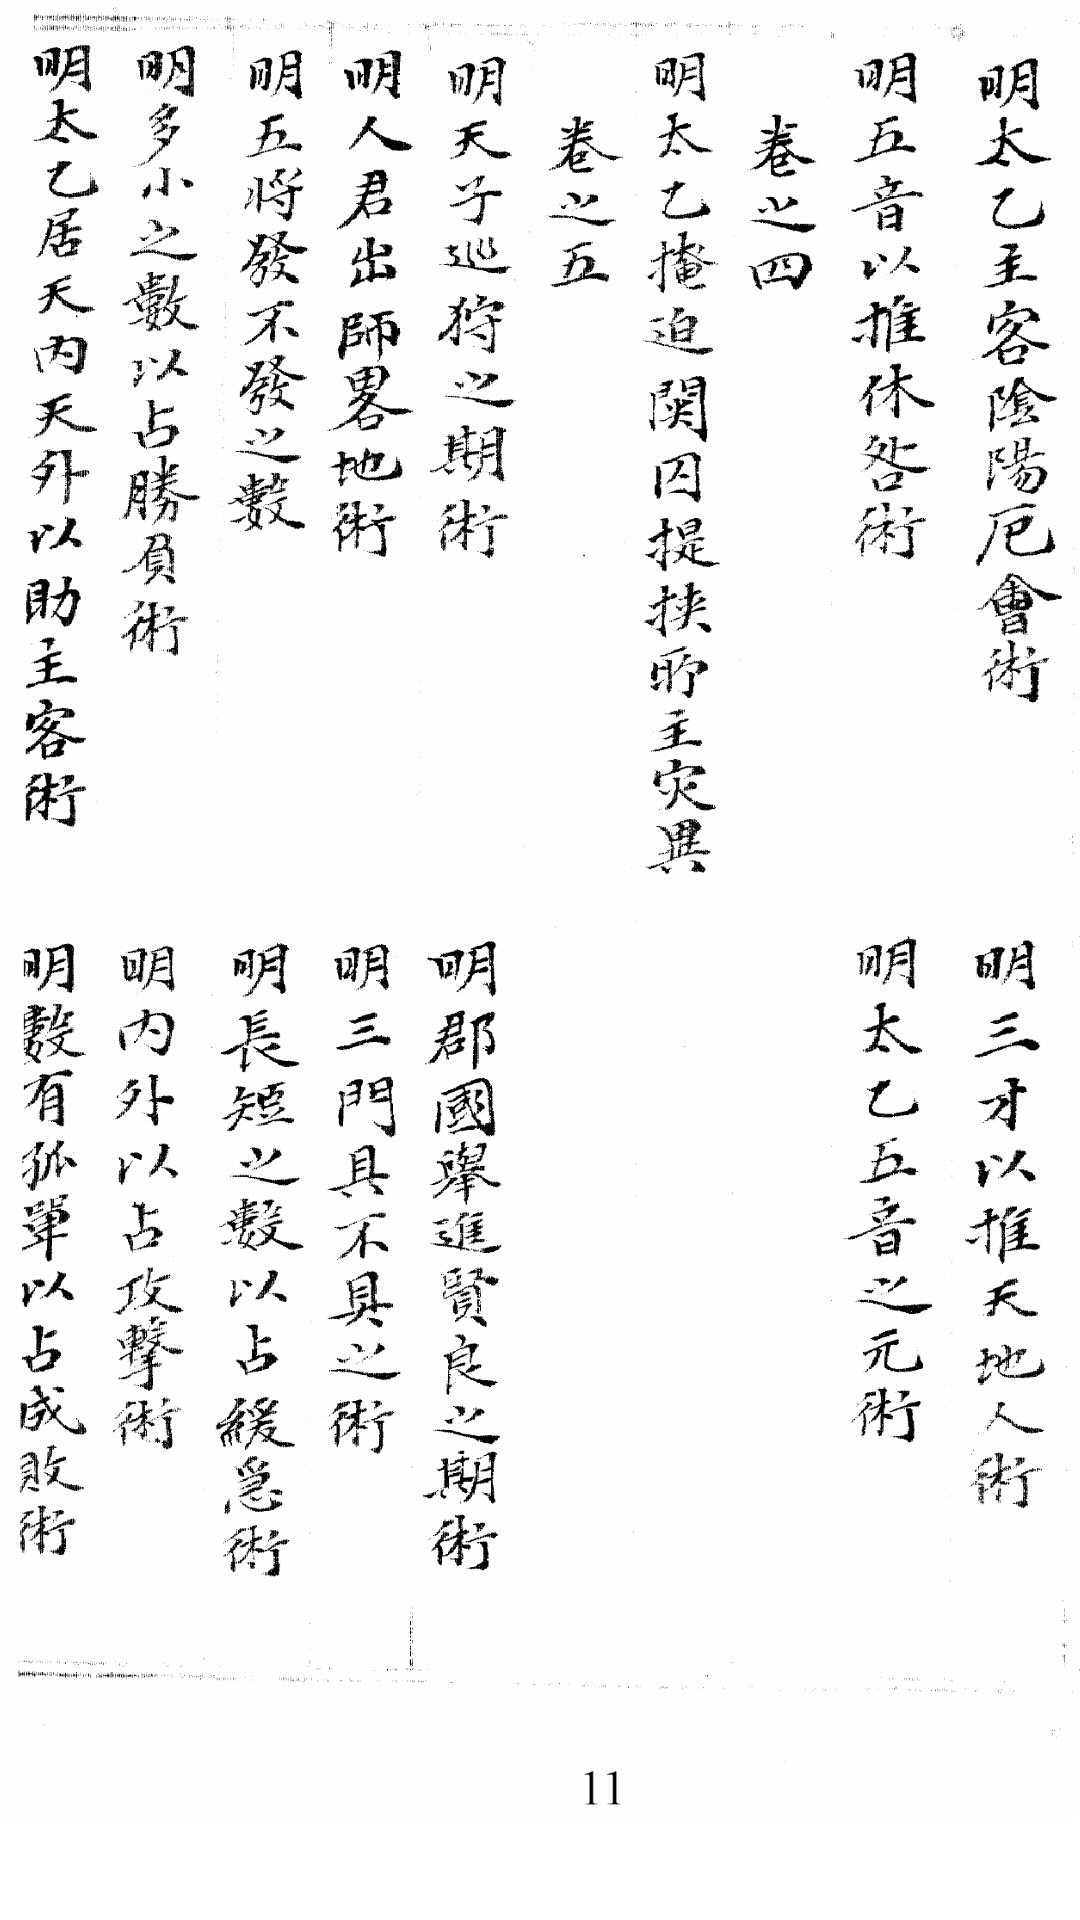 明太乙主客陰陽厄會術
明三才以推天地人術
明五音以推休咎術
明太乙五音之元術
卷之四
明太乙掩迫関囚提挾所主灾異
卷之五
明天子巡狩之期術
明郡國舉進賢良之期術
明人君出師畧地術
明三門具不具之術
明五將發不發之數
明長短之數以占緩急術
明多小之數以占勝負術
明内外以占攻擊術
明太乙居天内天外以助主客術
明數有孤單以占成敗術
11